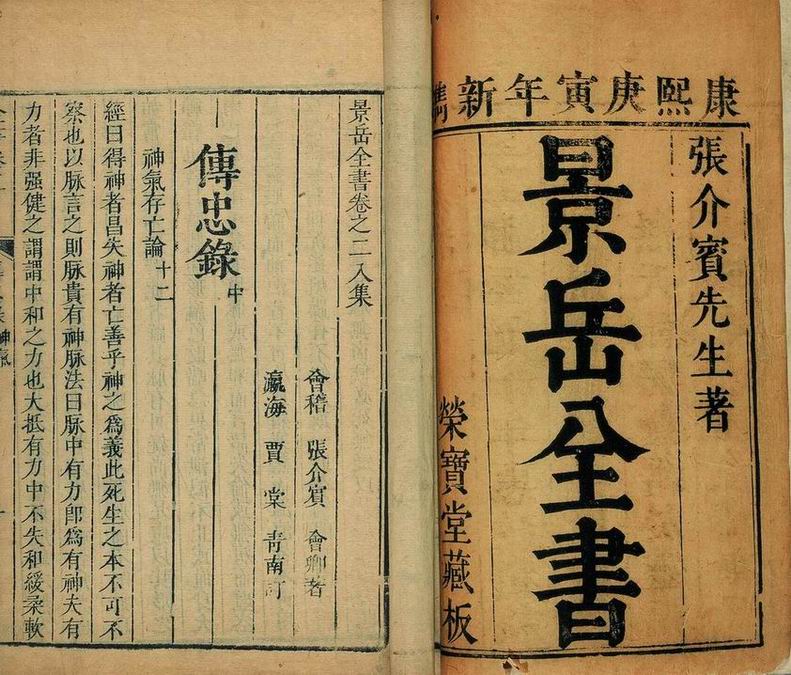 康熙庚寅年新鐫
張介賓先生著
景岳全書
榮寶堂藏板
景岳全書卷之二入集
會稽 張介賓 會卿著
瀛海 賈棠 青南訂
傳忠錄 中
神氣存亡論 十二
經曰得神者昌失神者亡善乎神之為義此死生之本不可不
察也以脉言之則脉貴有神脉法曰脉中有力郎為有神夫有
力者非强健之謂謂中和之力也大抵有力中不失和緩柔軟
神氣